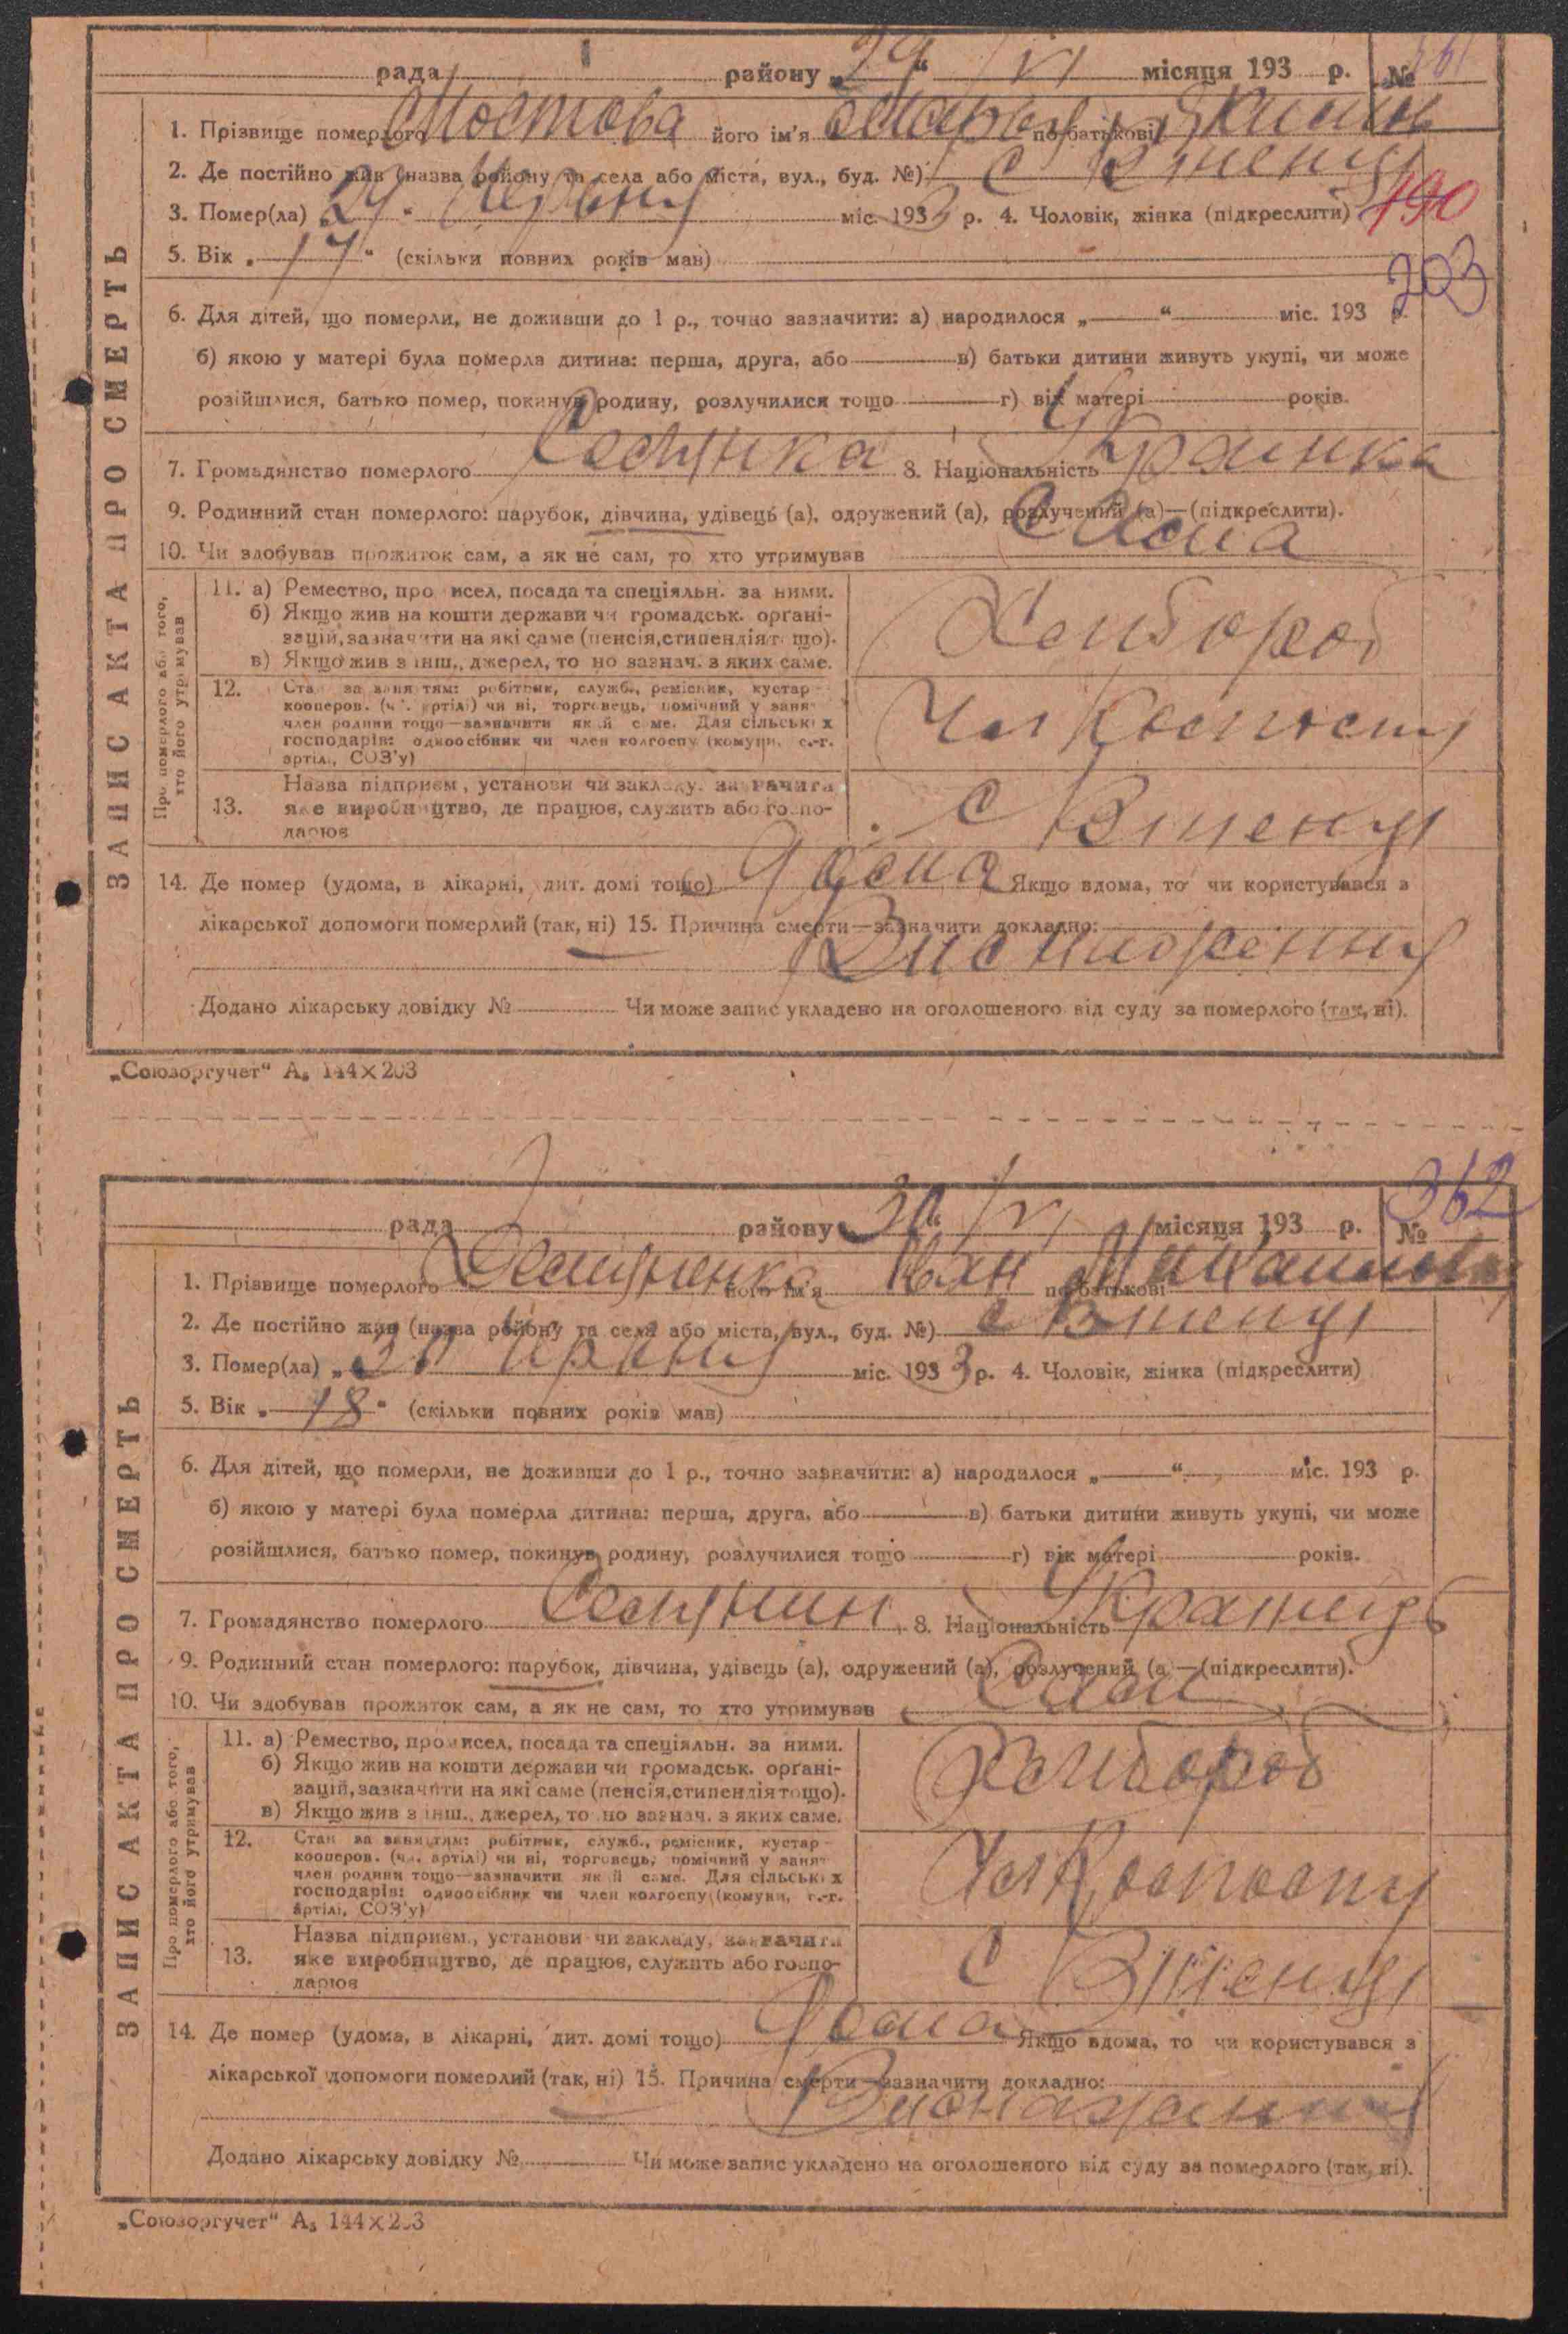 рада району „29“ /VI місяця 193 р. № 361
ЗАПИС АКТА ПРО СМЕРТЬ
1. Прізвище померлого Мостова його ім'я Марья по батькові
2. Де постійно жив (назва району та села або міста, вул., буд. №) с
190
3. Помер(ла) „29. Червня міс. 1933 р. 4. Чоловік, жінка (підкреслити)
5. Вік „17“ (скільки повних років мав)
203
6. Для дітей, що померли, не доживши до 1 р., точно зазначити: а) народилося „—“ міс. 193 р.
б) якою у матері була померла дитина: перша, друга, або — в) батьки дитини живуть укупі, чи може
розійшлися, батько помер, покинув родину, розлучилися тощо — г) вік матері років.
7. Громадянство померлого 8. Національність Украинка
9. Родинний стан померлого: парубок, дівчина, удівець (а), одружений (а), розлучений (а)—(підкреслити).
10. Чи здобував прожиток сам, а як не сам, то хто утримував Сама
Про померлого або того, хто його утримував
11. а) Ремество, промисел, посада та спеціяльн. за ними.
б) Якщо жив на кошти держави чи громадськ. орґані-
зацій, зазначити на які саме (пенсія, стипендія тощо).
в) Якщо жив з інш., джерел, то но зазнач. з яких саме.
Хлибороб
12. Стан за заняттям: робітник, служб., ремісник, кустар
кооперов. (чл. артілі) чи ні, торговець, помічний у занят
член родини тощо—зазначити який саме. Для сільських
господарів: одноосібник чи член колгоспу (комуни, с.-г.
артілі, СОЗ'у)
13. Назва підприєм., установи чи закладу. зазначити
яке виробництво, де працює, служить або госпо-
дарює
с
14. Де помер (удома, в лікарні, дит. домі тощо) Якщо вдома, то чи користувався з
лікарської допомоги померлий (так, ні) 15. Причина смерти—зазначити докладно:
Виснаження
Додано лікарську довідку № — Чи може запис укладено на оголошеного від суду за померлого (так, ні).
„Союзоргучет“ А₅ 144×203
рада району „30“ /VI місяця 193 р. № 362
ЗАПИС АКТА ПРО СМЕРТЬ
1. Прізвище померлого його ім'я Иван по батькові
2. Де постійно жив (назва району та села або міста, вул., буд. №) с
3. Помер(ла) „30 Червня міс. 1933 р. 4. Чоловік, жінка (підкреслити)
5. Вік „18“ (скільки повних років мав)
6. Для дітей, що померли, не доживши до 1 р., точно зазначити: а) народилося „—“ міс. 193 р.
б) якою у матері була померла дитина: перша, друга, або — в) батьки дитини живуть укупі, чи може
розійшлися, батько помер, покинув родину, розлучилися тощо — г) вік матері років.
7. Громадянство померлого 8. Національність
9. Родинний стан померлого: парубок, дівчина, удівець (а), одружений (а), розлучений (а—(підкреслити).
10. Чи здобував прожиток сам, а як не сам, то хто утримував Сам
Про померлого або того, хто його утримував
11. а) Ремество, промисел, посада та спеціяльн. за ними.
б) Якщо жив на кошти держави чи громадськ. орґані-
зацій, зазначити на які саме (пенсія, стипендія тощо).
в) Якщо жив з інш., джерел, то но зазнач. з яких саме.
Хлибороб
12. Стан за заняттям: робітник, служб., ремісник, кустар
кооперов. (чл. артілі) чи ні, торговець, помічний у занят
член родини тощо—зазначити який саме. Для сільських
господарів: одноосібник чи член колгоспу (комуни, с.-г.
артілі, СОЗ'у)
13. Назва підприєм., установи чи закладу, зазначити
яке виробництво, де працює, служить або госпо-
дарює
с
14. Де помер (удома, в лікарні, дит. домі тощо) Якщо вдома, то чи користувався з
лікарської допомоги померлий (так, ні) 15. Причина смерти—зазначити докладно:
Виснаження
Додано лікарську довідку № — Чи може запис укладено на оголошеного від суду за померлого (так, ні).
„Союзоргучет“ А₅ 144×203